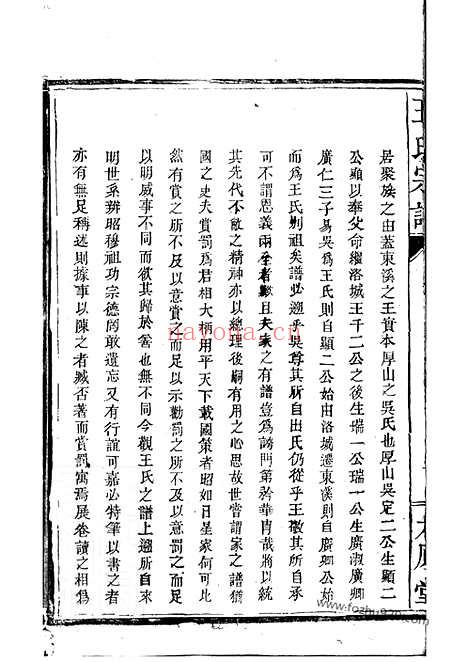 王氏宗譜
大原堂
居聚族之由蓋東溪之王資本厚山之吳氏也厚山吳定二公生顯二
公顯以奉父命繼洛城王千二公之後生瑞一公瑞一公生廣淑廣卿
廣仁三子易吳爲王氏則自顯二公始由洛城遷東溪則自廣卿公始
而爲王氏則祖矣譜必遡乎吳尊其所自出氏仍從乎王敬其所自承
可不謂恩義兩至者歟且夫家之有譜豈爲誇門第矜華肖哉將以統
其先代不敝之精神亦以總理後嗣有用之心思故世嘗謂家之譜猶
國之史夫賞罰爲君相大柄用平天下載國策者昭如日星家何可比
然有賞之所不及以意賞之而足以示勸罰之所不及以意罰之而足
以明威事不同而欲其歸於善也無不同今觀王氏之譜上遡所自來
明世系辨昭穆祖功宗德罔敢遺忘又有行誼可嘉必特筆以書之者
亦有無足稱述則據事以陳之者臧否著而賞罰寓焉展卷讀之相傷
nayona.cn
www.fozhu920.com